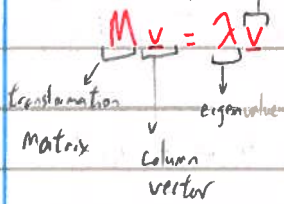 M v = λ v
transformation
matrix
column
vector
eigenvalue